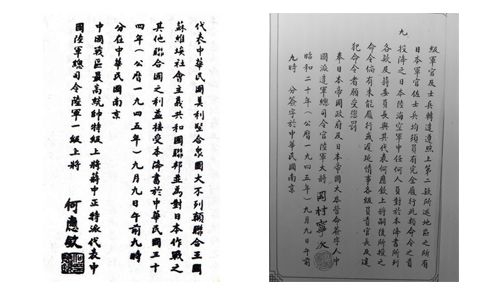 級軍官及士兵轉達遵照上第二款所述地區之所有
日本軍官佐士兵均須負有完全履行此類命令之責
九 投降之日本陸海空軍中任何人員對於本降書所列
各款及蔣委員長與其代表何應欽上將嗣後所授之
命令倘有未能履行或遲延情事各級負責官長及違
犯命令者願受懲罰
奉日本帝國政府及日本帝國大本營命簽字人中
國派遣軍總司令官陸軍大將 岡村寧次
昭和二十年（公曆一九四五年）九月九日午前
九時 分簽字於中華民國南京
代表中華民國美利堅合眾國大不列顛聯合王國
蘇維埃社會主義共和國聯邦並為對日本作戰之
其他聯合國之利益接受本降書於中華民國三十
四年（公曆一九四五年）九月九日午前九時
分在中華民國南京
中國戰區最高統帥特級上將蔣中正特派代表中
國陸軍總司令陸軍一級上將
何應欽